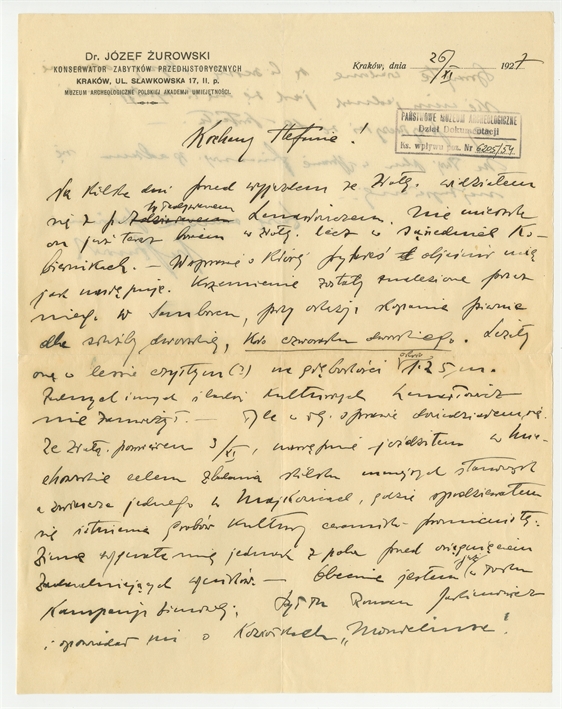 Dr. JÓZEF ŻUROWSKI
KONSERWATOR ZABYTKÓW PRZEDHISTORYCZNYCH
KRAKÓW, UL. SŁAWKOWSKA 17, II. p.
MUZEUM ARCHEOLOGICZNE POLSKIEJ AKADEMJI UMIEJĘTNOŚCI.
Kraków, dnia 26/XI 1927
PAŃSTWOWE MUZEUM ARCHEOLOGICZNE
Dział Dokumentacji
Ks. wpływu poz. Nr 6205/54
Kochany Stefanie!
Na kilka dni przed wyjazdem ze Złotej widziałem
się z p. Władysławem Lenartowiczem. Nie mieszka
on już teraz w Złotej, lecz w sąsiednich Ko-
biernikach. — W sprawie o której pytałeś objaśnił mię
jak następuje. Krzemienie zostały znalezione przez
niego w Samborcu, przy okazji kopania
dla szkoły dworskiej, koło czworaku dworskiego. Leżały
one w lessie czystym (?) na głębokości około 1.25 m.
Żadnych innych śladów kulturowych Lenartowicz
nie zauważył. — Tyle w tej sprawie dowiedziałem się.
Ze Złotej powróciłem 3/XI, następnie jeździłem w Mie-
chowskie celem zbadania kilku stanowisk
a zwłaszcza jednego w Majkowicach, gdzie spodziewałem
się istnienia grobów kultury ceramiki promienistej.
Zima wygnała mię jednak z pola przed osiągnięciem
zadowalniających wyników. — Obecnie jestem już w toku
kampanji zimowej. Był tu Roman Jakimowicz
i opowiadał mi o